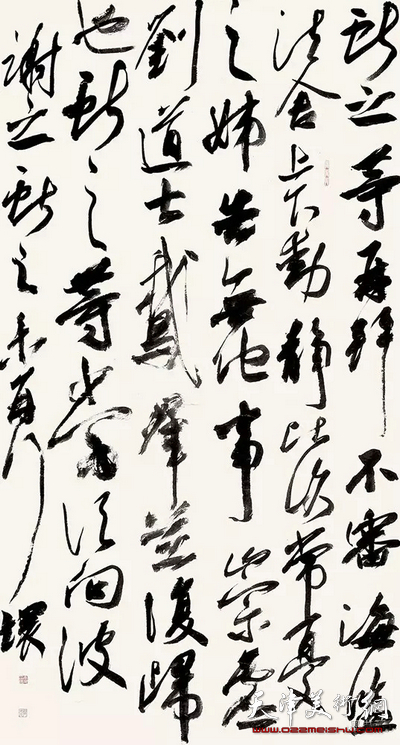 献之等再拜不審海鹽
诸舍上下動静比复常憂
之姊告無他事崇虚
劉道士鵝群並復歸
也献之等當須向彼
謝之献之
環
天津美術網
www.022meishu.com